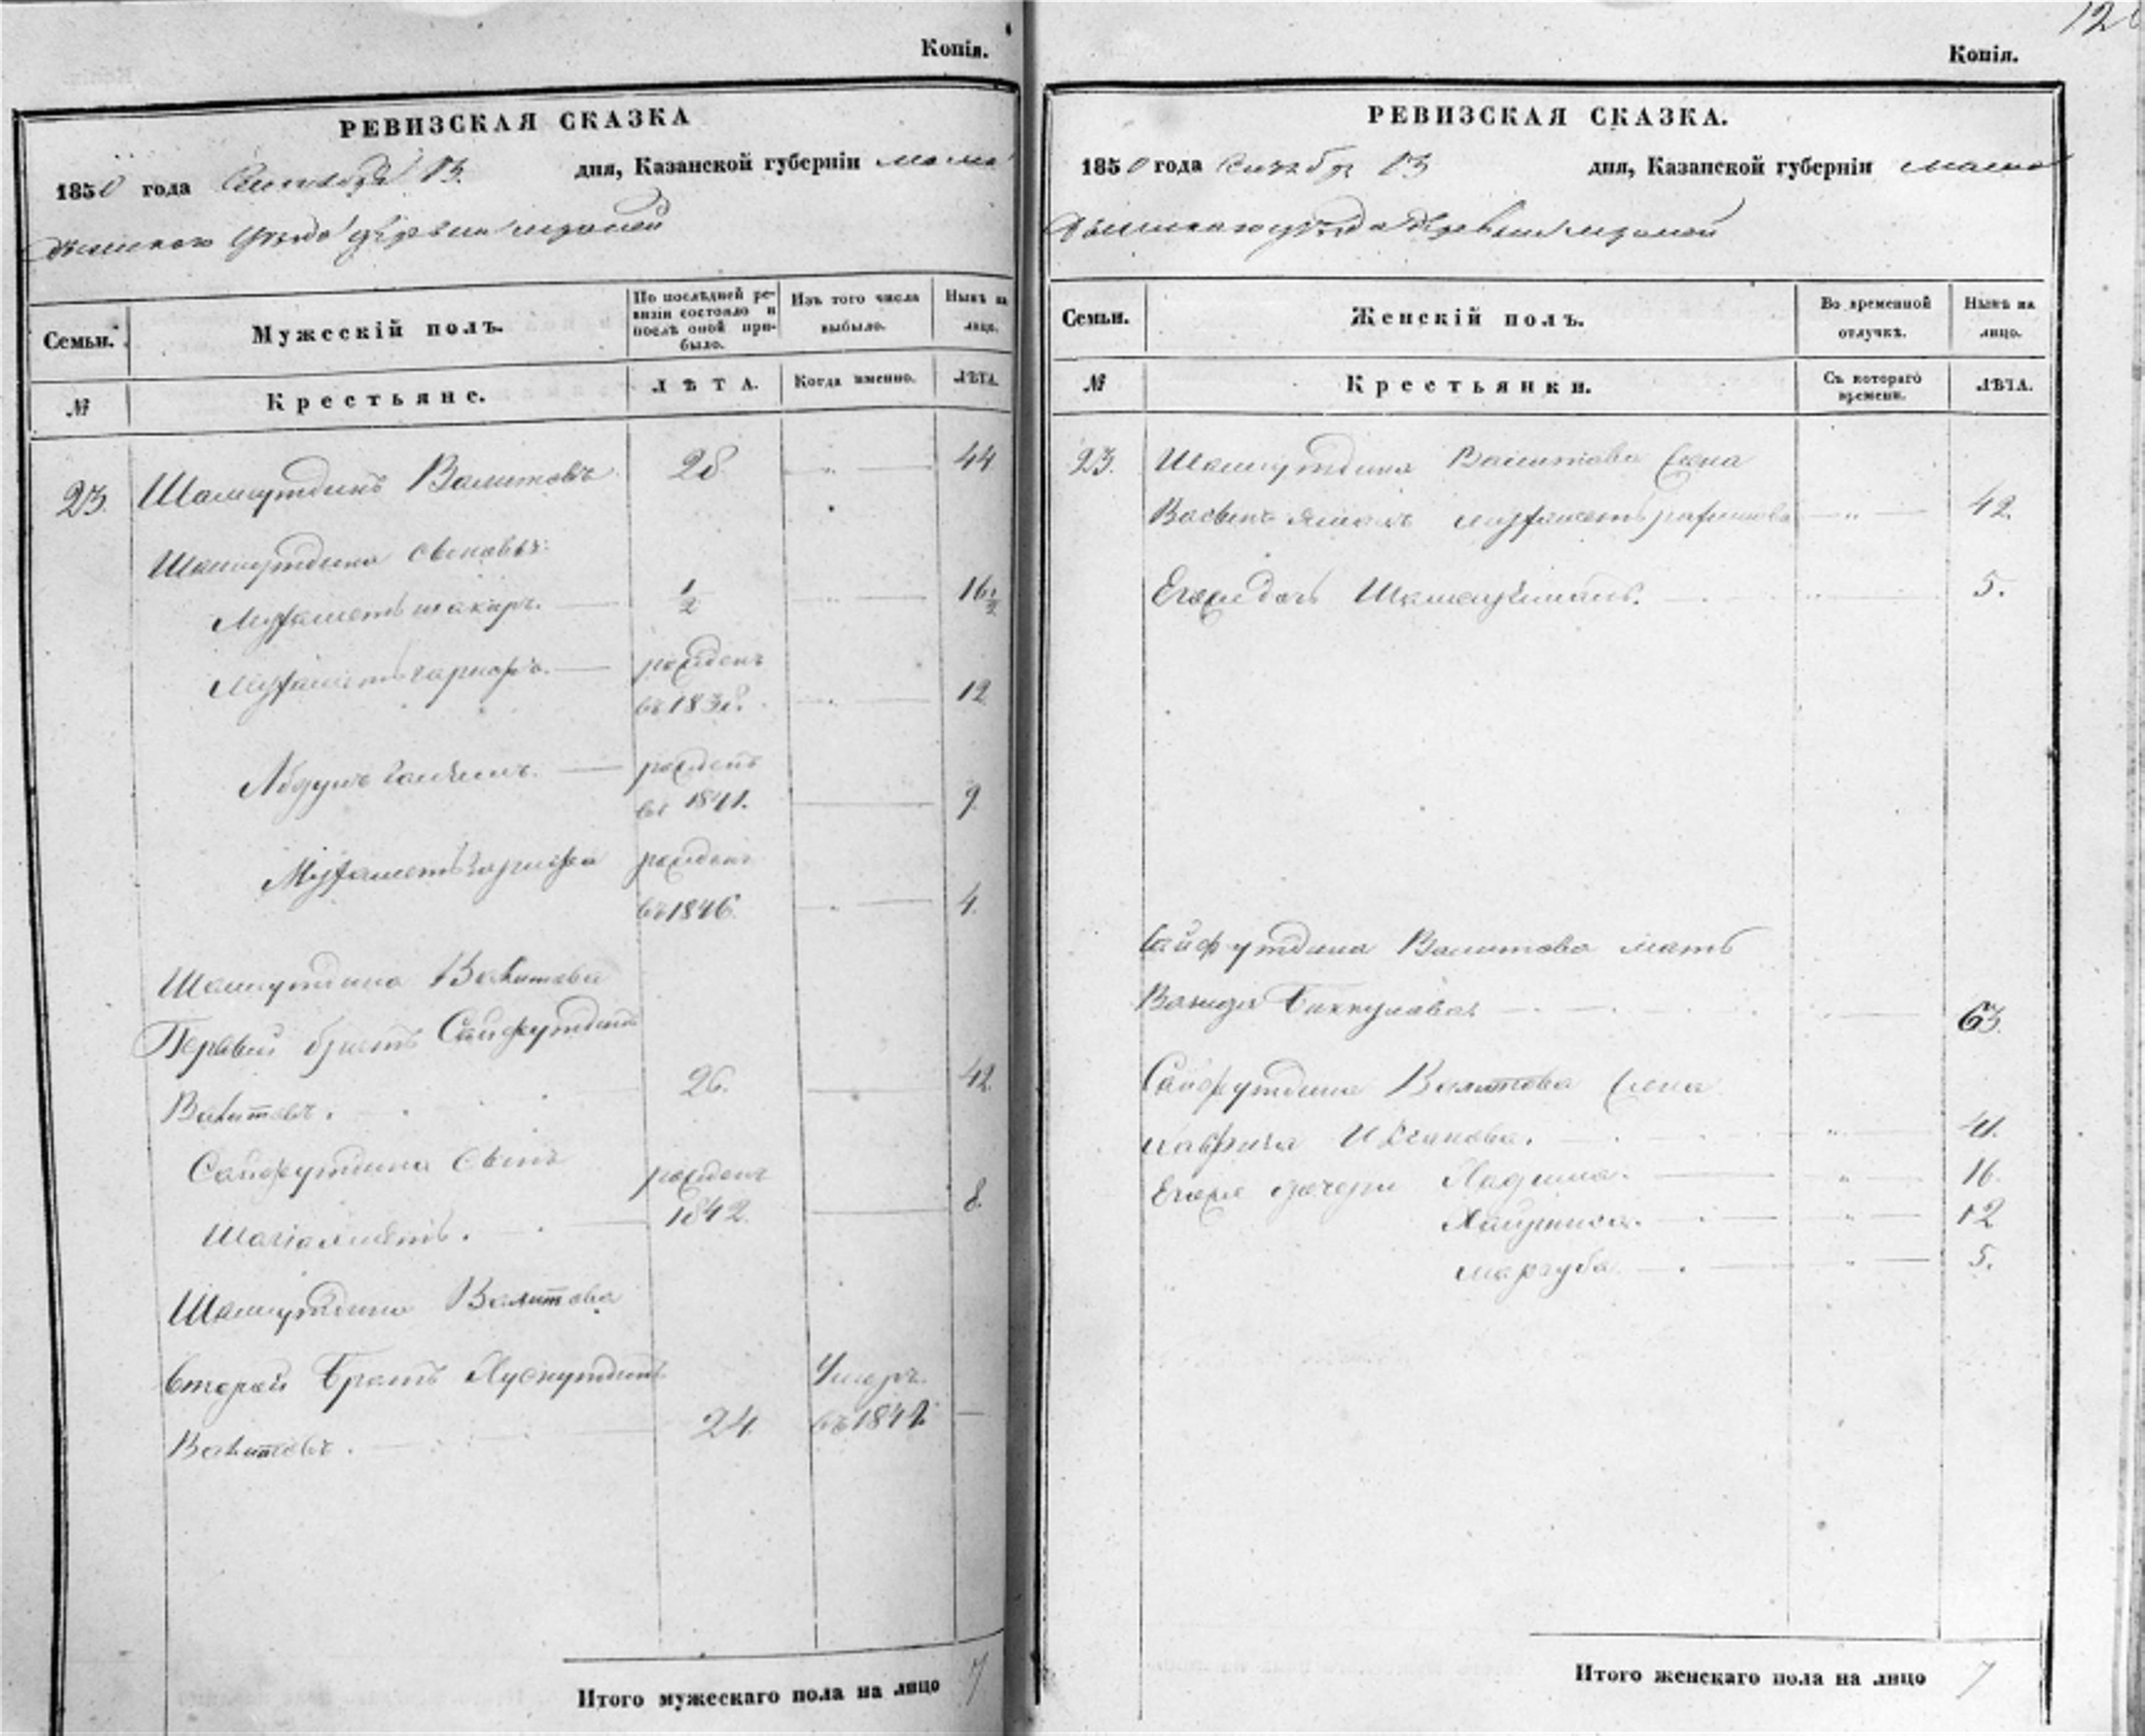 Копія.
РЕВИЗСКАЯ СКАЗКА
1850 года Сентября 13. дня, Казанской губерніи Мама
дышскаго уѣзда деревни
Семьи.
Мужескій полъ.
По послѣдней ре-
визіи состояло и
послѣ оной при-
было.
Изъ того числа
выбыло.
Нынѣ на
лицо.
№
Крестьяне.
ЛѢТА.
Когда именно.
ЛѢТА.
23. Шамсутдинъ Валитовъ 28 44
Шамсутдина сыновья:
Мухаметшакиръ. 1/2 16 1/2
рожденъ
въ 1838. 12
рожденъ
въ 1841. 9
рожденъ
въ 1846. 4.
Шамсутдина Валитова
Первый братъ Сайфутдинъ
Валитовъ. 26. 42
Сайфутдина сынъ рожденъ
Шагіахметъ. 1842. 8.
Шамсутдина Валитова
Второй братъ Хуснутдинъ Умеръ
Валитовъ. 24. въ 1842 —
Итого мужескаго пола на лицо 7
12
Копія.
РЕВИЗСКАЯ СКАЗКА.
1850 года Сентября 13 дня, Казанской губерніи Мама
дышскаго уѣзда деревни
Семьи.
Женскій полъ.
Во временной
отлучкѣ.
Нынѣ на
лицо.
№
Крестьянки.
Съ котораго
времени.
ЛѢТА.
23. Шамсутдина Валитова жена
42.
Его дочь 5.
Сайфутдина Валитова мать
63.
Сайфутдина Валитова жена
41.
Его же дочери 16.
12
Маргуба 5.
Итого женскаго пола на лицо 7